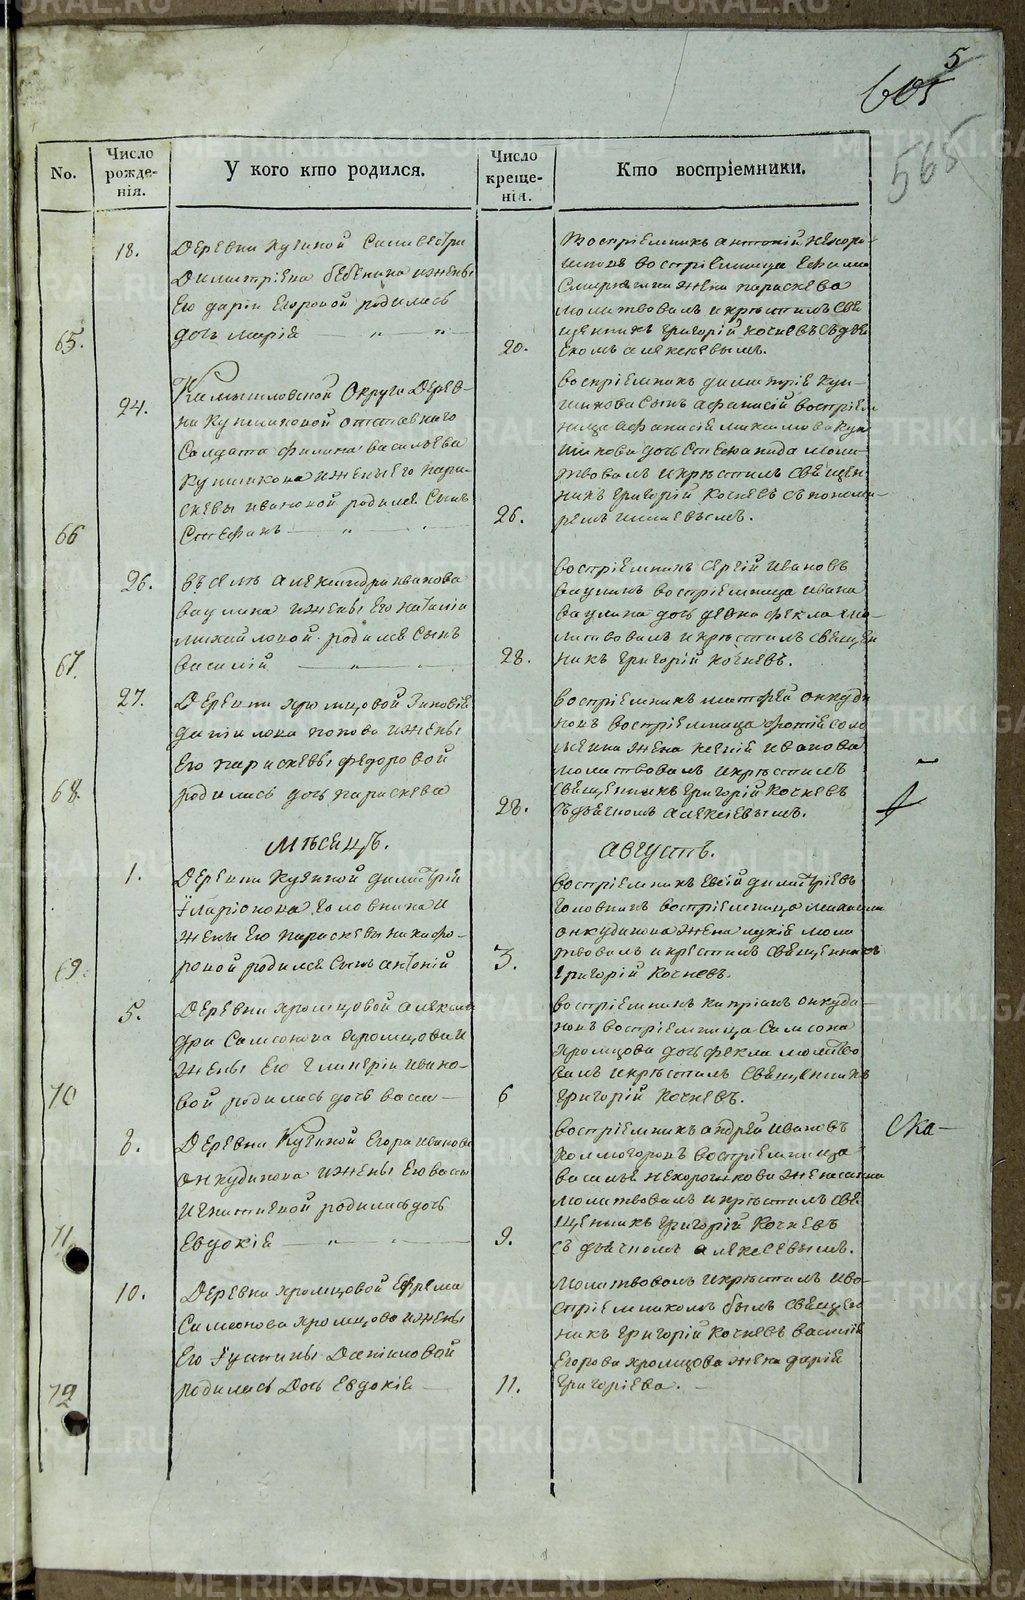 5
605
565
No.
Число рожденія.
У кого кто родился.
Число крещенія.
Кто воспріемники.
65.
18.
Деревни Кучиной Силивестра
Димитріева Бебенина и жены
Его Даріи Егоровой родилась
дочь Марія
20.
Воспріемникъ Антоній Нехоро-
шковъ воспріемница Ефима
жена Параскева
молитвовалъ и крѣстилъ Свя-
щенникъ Григорій Кочневъ съ дья-
комъ Алексеевымъ.
66
24.
Камышловской Округи Дерев-
ни Кушниковой отставнаго
Солдата Филипа Васильева
Кушникова и жены Его Пара-
скевы Ивановой родился Сынъ
Стефанъ
26.
Воспріемникъ Димитрія Куш-
никова Сынъ Афанасій воспріем
ница Афанасія Михайлова Куш
никова дочь Степанида моли-
твовалъ и крѣстилъ Священ
никъ Григорій Кочневъ съ понома-
ремъ
67.
26.
въ селѣ Александра Иванова
Ваулина и жены Его Наталіи
Михайловой родился Сынъ
Василій
28.
Воспріемникъ Сергій Ивановъ
Ваулинъ воспріемница Ивана
Ваулина дочь девка Фекла мо-
литвовалъ и крѣстилъ Священ
никъ Григорій Кочневъ.
68.
27.
Деревни Хромцовой Зиновія
Данилова Попова и жены
Его Параскевы Федоровой
родилась дочь Параскева
28.
Воспріемникъ Матфей Онкуди
новъ воспріемница Фотія
жена Ксенія Иванова
молитвовалъ и крѣстилъ
Священникъ Григорій Кочневъ
съ дьячкомъ Алексіевымъ.
Мѣсяцъ.
Августъ.
69.
1.
Деревни Кучиной Димитрія
Иларіонова Головнина и
жены Его Параскевы Никифо-
ровой родился Сынъ Антоній
3.
Воспріемникъ Евсій Димитріевъ
Головнинъ воспріемница
Онкудинова жена Лукія моли
твовалъ и крестилъ Священникъ
Григорій Кочневъ.
70
5.
Деревни Хромцовой Алексан
дра Самсонова Хромцова и
жены Его Гликеріи Ивано-
вой родилась дочь Васса
6
Воспріемникъ Капріанъ Онкуди-
новъ воспріемница Самсона
Хромцова дочь Фекла молитво
валъ и крѣстилъ Священникъ
Григорій Кочневъ.
71.
8.
Деревни Кучиной Егора Иванова
Онкудинова и жены Его Вассы
Игнатіевой родилась дочь
Евдокія
9.
Воспріемникъ Андрей Ивановъ
Колмогоровъ воспріемница
Василья Нехорошкова жена
молитвовалъ и крѣстилъ Свя-
щенникъ Григорій Кочневъ
съ дьячкомъ Алексеевымъ.
Ска-
72
10.
Деревни Хромцовой Ефрема
Самсонова Хромцова и жены
Его Густины Даниловой
родилась Дочь Евдокія
11.
Молитвовалъ и крѣстилъ и во-
спріемникомъ былъ Священ
никъ Григорій Кочневъ Василія
Егорова Хромцова жена Дарія
Григоріева.
METRIKI.GASO-URAL.RU